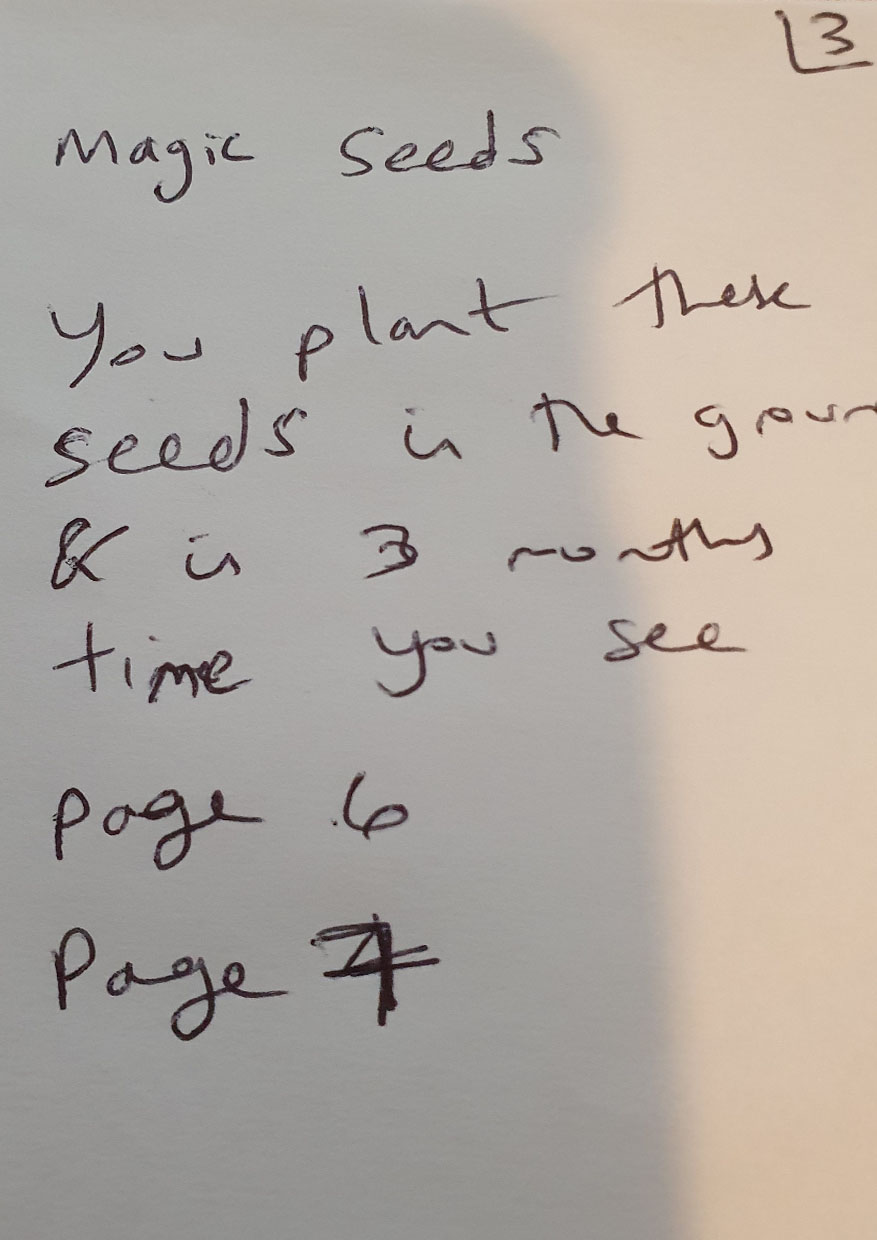 3
Magic Seeds
You plant these
seeds in the groun
& in 3 months
time you see
page 6
Page